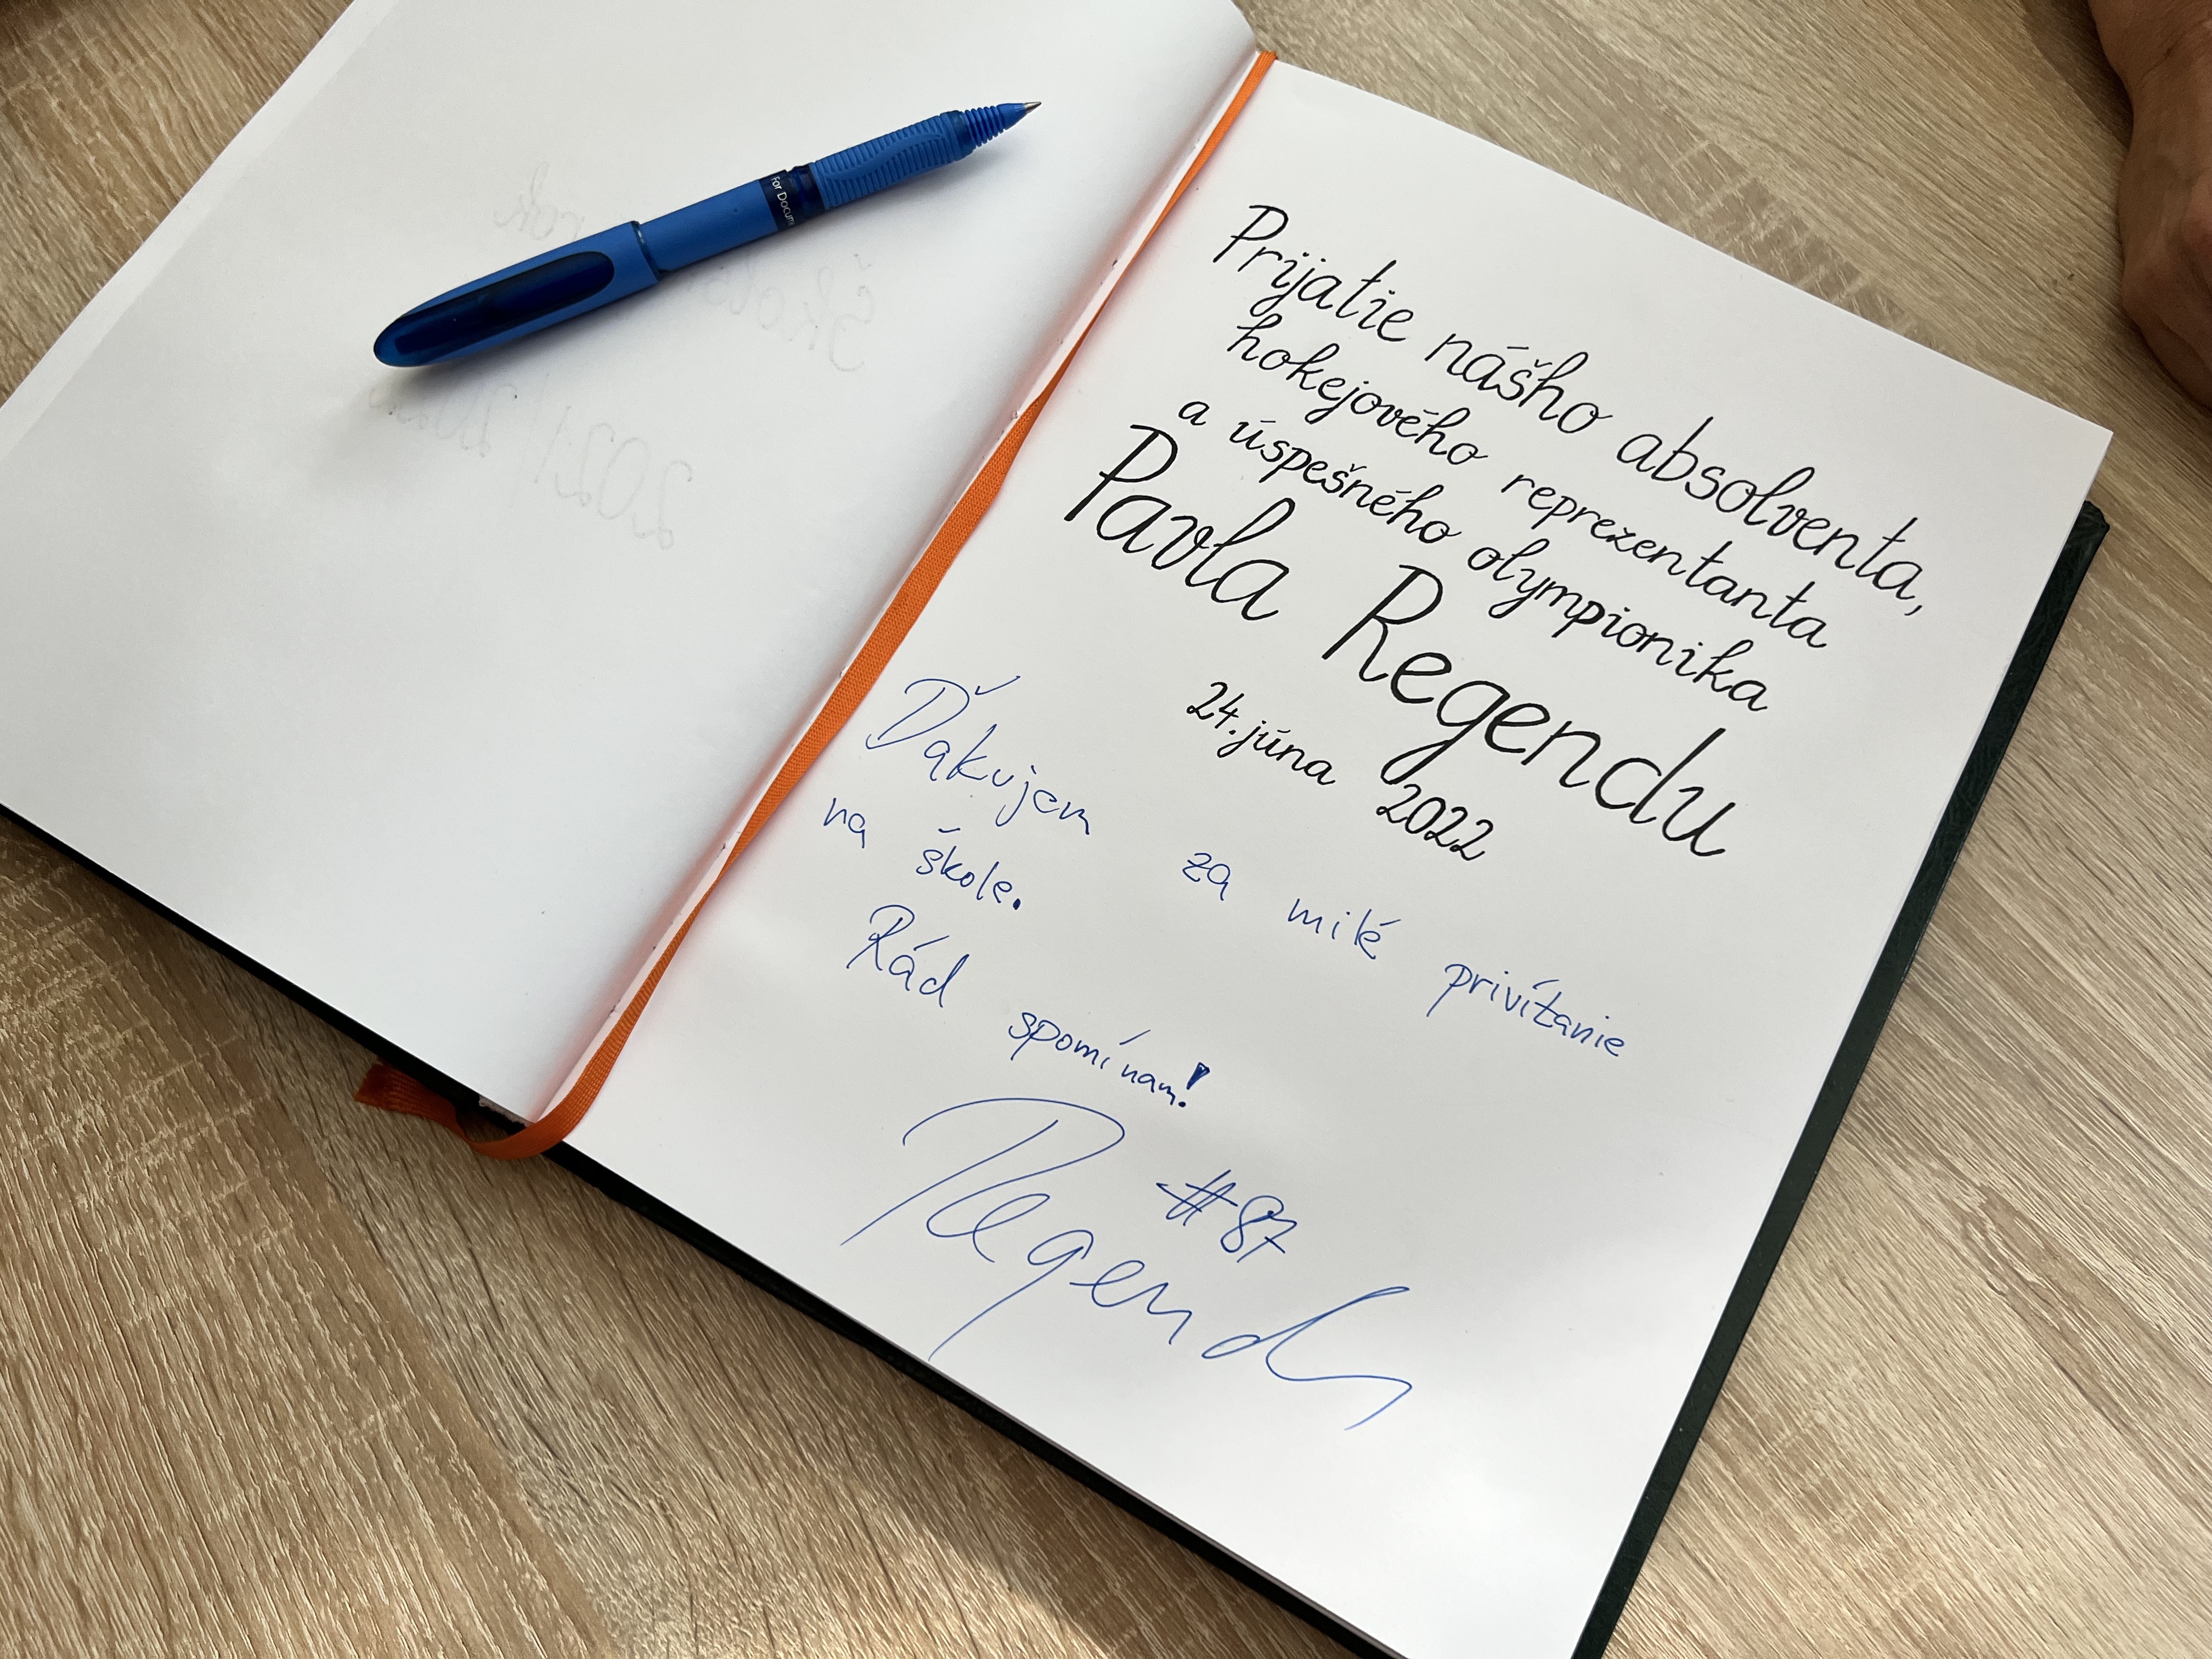 Prijatie nášho absolventa,
hokejového reprezentanta
a úspešného olympionika
Pavla Regendu
24. júna 2022
Ďakujem za milé privítanie
na škole.
Rád spomínam!
#87
Regenda
For Docum